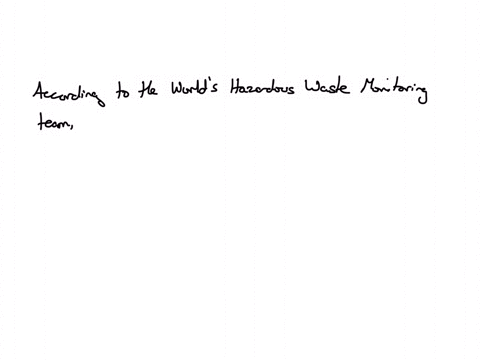 According to the World's Hazardous Waste Monitoring
team,